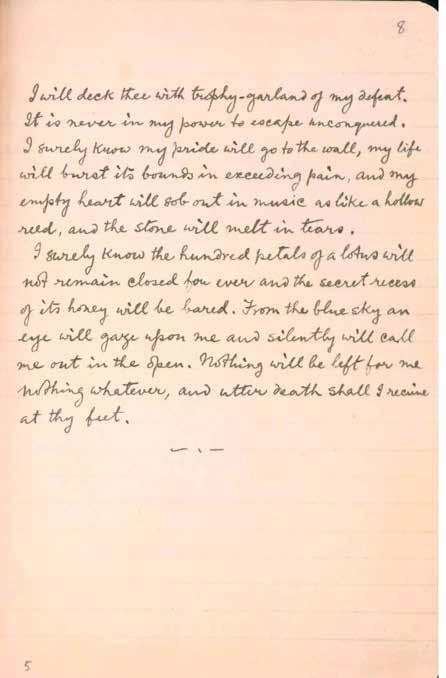 8
I will deck thee with trophy-garland of my defeat.
It is never in my power to escape unconquered.
I surely know my pride will go to the wall, my life
will burst its bounds in exceeding pain, and my
empty heart will sob out in music as like a hollow
reed, and the stone will melt in tears.
I surely know the hundred petals of a lotus will
not remain closed fou ever and the secret recess
of its honey will be bared. From the blue sky an
eye will gaze upon me and silently will call
me out in the open. Nothing will be left for me
nothing whatever, and utter death shall I recieve
at thy feet.
5